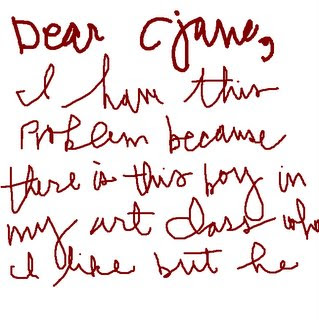 Dear Cjane,
I have this
Problem because
there is this boy in
my art class who
I like but he